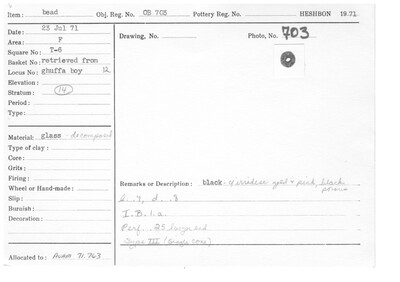 Item: bead Obj. Reg. No. OB 703 Pottery Reg. No. HESHBON 19.71.
Date: 23 Jul 71
Area: F
Square No: T-6
Basket No: retrieved from
Locus No: ghuffa boy 12
Elevation:
Stratum: 14
Period:
Type:
Drawing, No. Photo, No. 703
Material: glass - decomposed
Type of clay:
Core:
Grits:
Firing:
Wheel or Hand-made:
Slip:
Burnish:
Decoration:
Remarks or Description: black - w/ irradesc gold + pink, black
l. .7, d. .8
I.B.1.a.
Perf. .25 larger end
Type III (Gauge cone)
Allocated to: AUAM 71.763